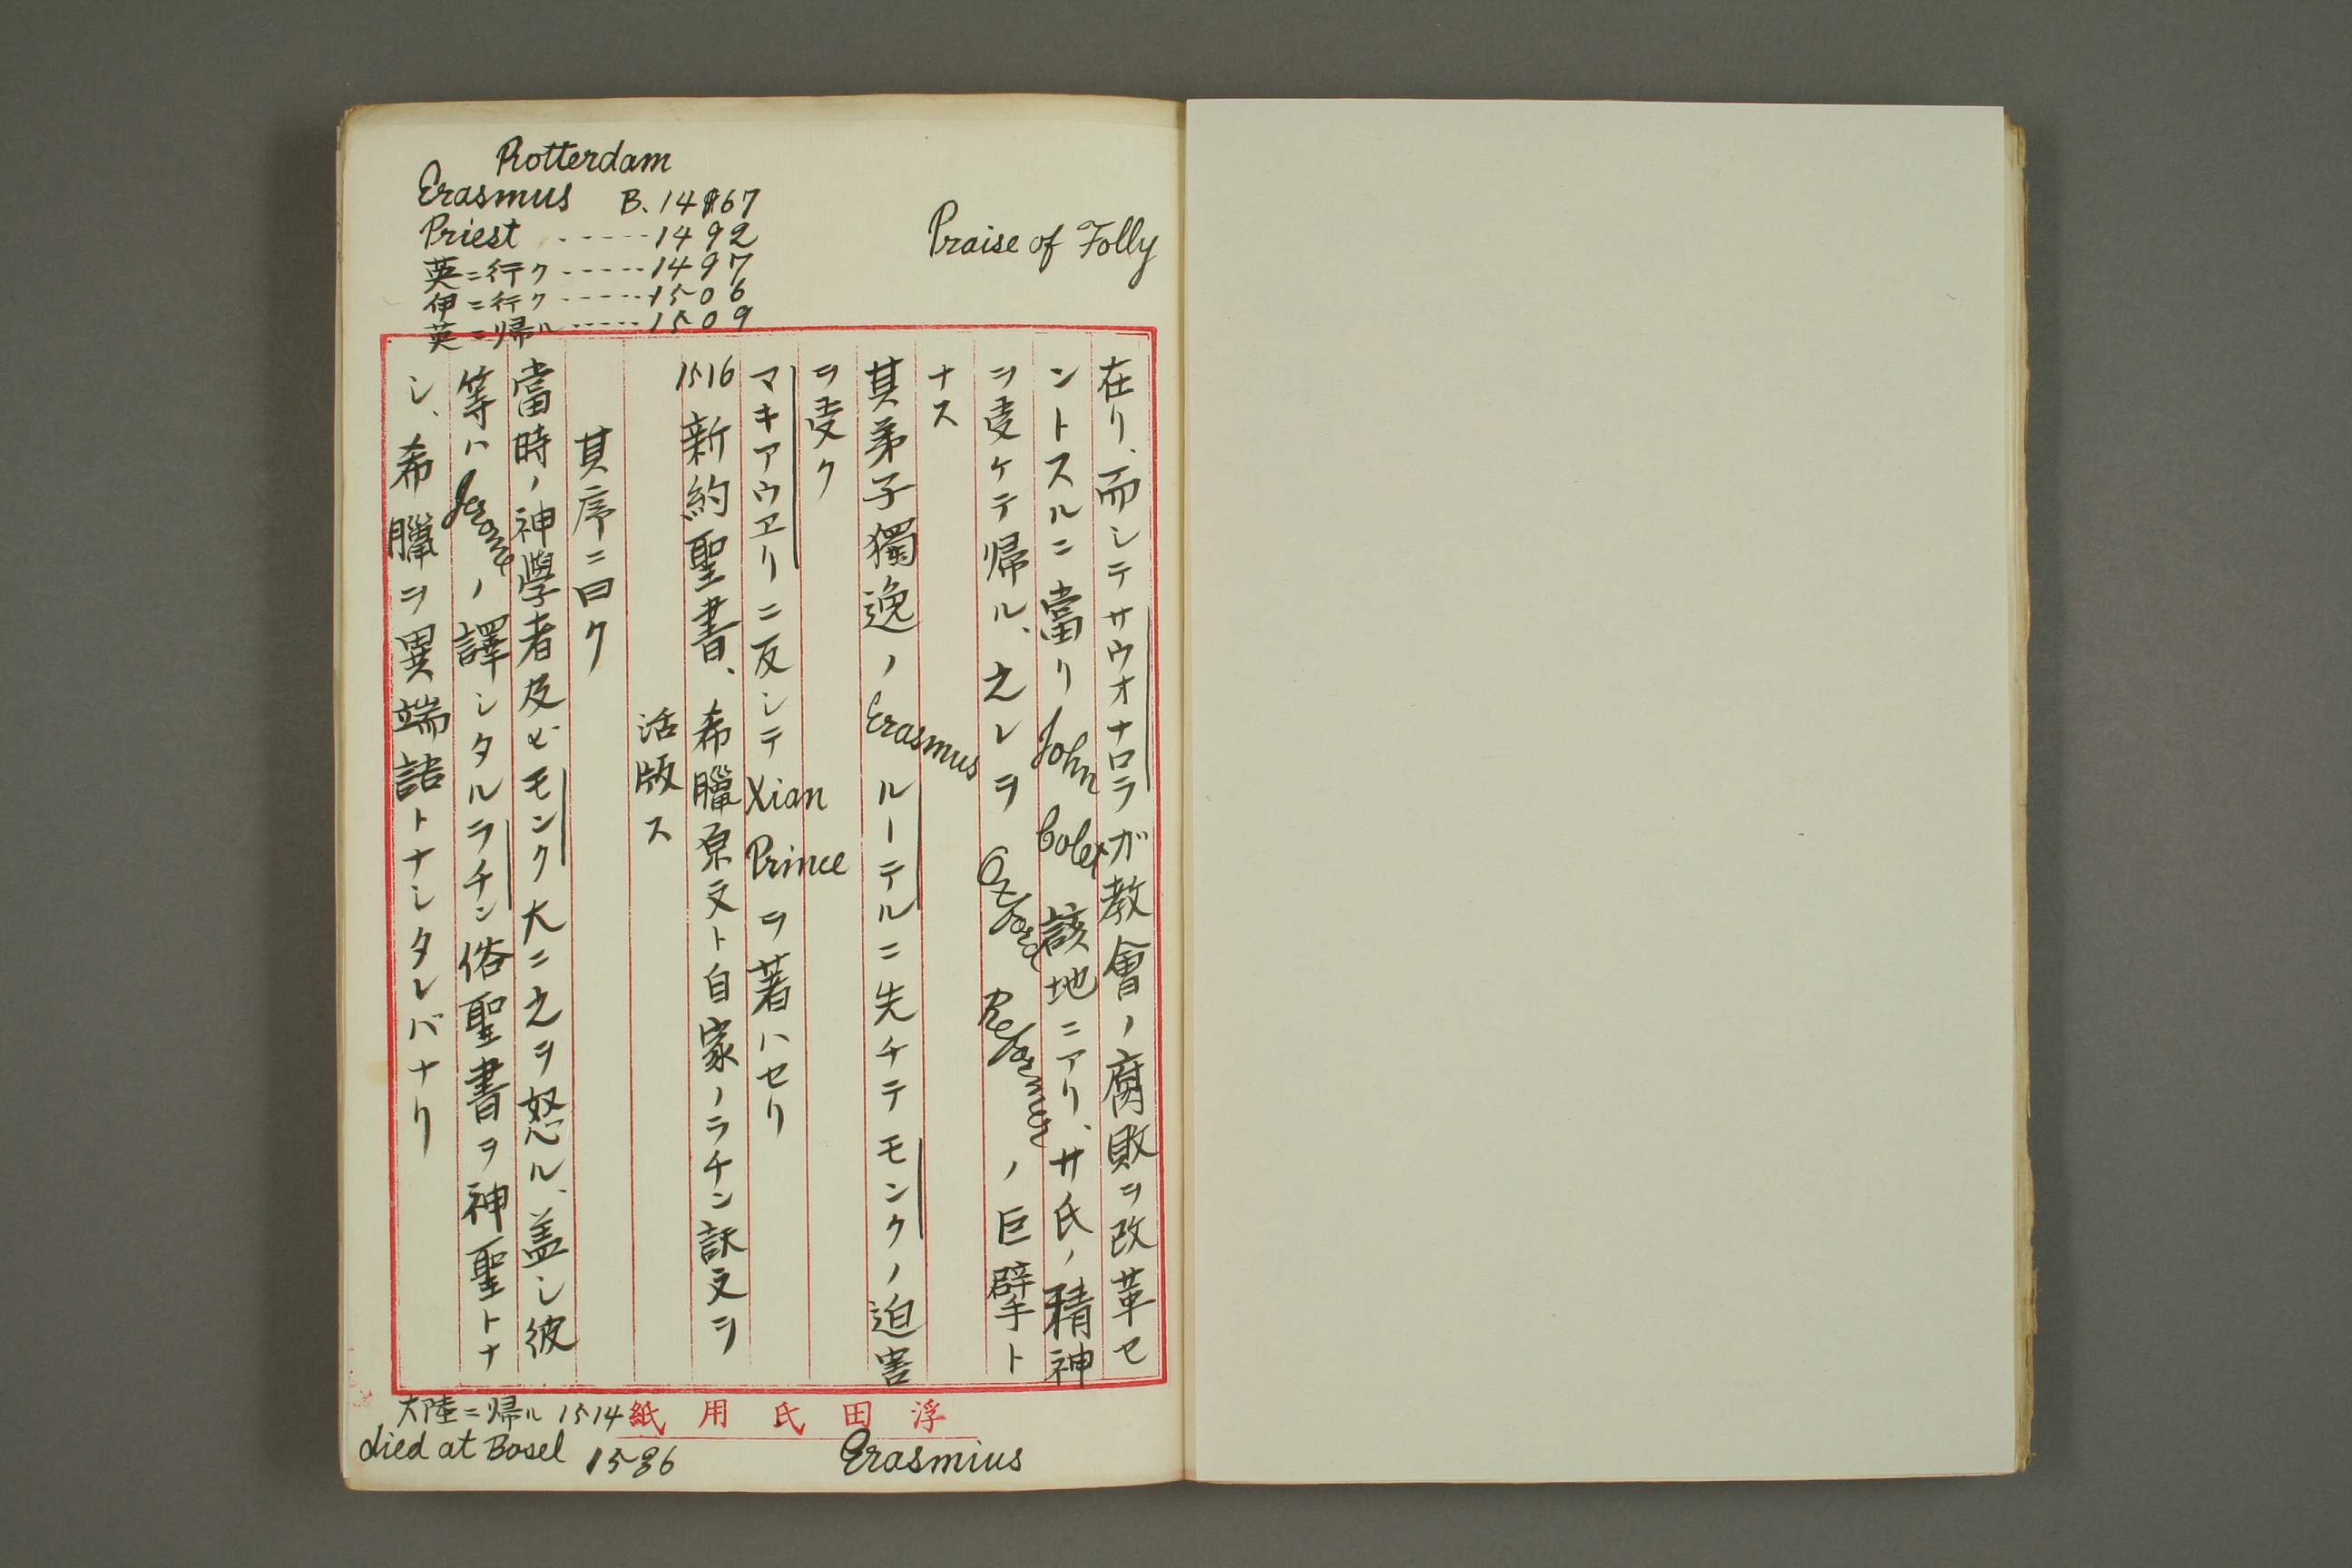 Rotterdam
Erasmus B. 1467
Priest ‐‐‐‐‐1492
英ニ行ク‐‐‐‐‐1497
伊ニ行ク‐‐‐‐‐1506
英ニ帰ル‐‐‐‐‐1509
Praise of Folly
在リ、而シテサウオナロラガ教會ノ腐敗ヲ改革セ
ントスルニ當リJohn Colet該地ニアリ、サ氏ノ精神
ヲ受ケテ帰ル、之レヲOxford Reformerノ巨擘ト
ナス
其弟子獨逸ノErasmus ルーテルニ先チテモンクノ迫害
ヲ受ク
マキアウヱリニ反シテXian Princeヲ著ハセリ
1516新約聖書、希臘原文ト自家ノラチン訳文ヲ
活版ス
其序ニ曰ク
當時ノ神學者及ビモンク大ニ之ヲ怒ル、盖シ彼
等ハJeromeノ譯シタルラチン俗聖書ヲ神聖トナ
シ、希臘ヲ異端語トナシタレバナリ
大陸ニ帰ル 1514
died at Basel 1536
浮田氏用紙
Erasmius